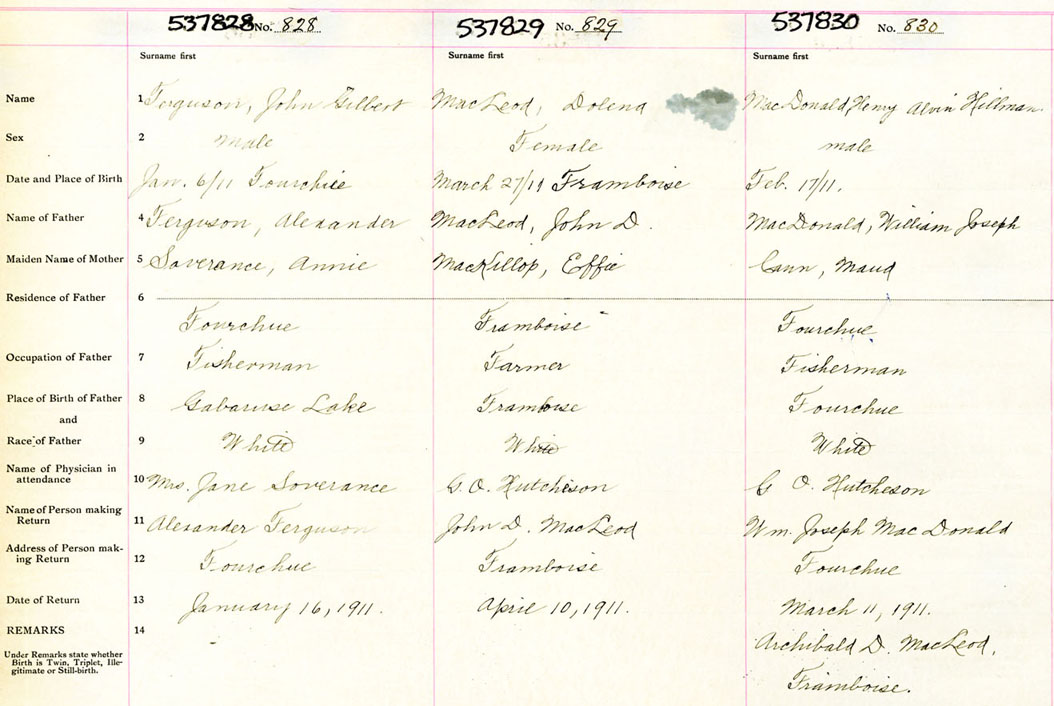 537828 No. 828 537829 No. 829 537830 No. 830
Surname first Surname first Surname first
Name 1 Ferguson, John Gilbert MacLeod, Dolena MacDonald, Henry Alvin Hillman
Sex 2 Male Female male
Date and Place of Birth Jan. 6/11 Fourchue March 27/11 Framboise Feb. 17/11.
Name of Father 4 Ferguson, Alexander MacLeod, John D. MacDonald, William Joseph
Maiden Name of Mother 5 Soverance, Annie MacKillop, Effie Cann, Maud
Residence of Father 6
Fourchue Framboise Fourchue
Occupation of Father 7 Fisherman Farmer Fisherman
Place of Birth of Father 8 Gabaruse Lake Framboise Fourchue
and
Race of Father 9 White White White
Name of Physician in
attendance 10 Mrs. Jane Soverance G. O. Hutcheson G O. Hutcheson
Name of Person making
Return 11 Alexander Ferguson John D. MacLeod Wm. Joseph MacDonald
Address of Person mak-
ing Return 12 Fourchue Framboise Fourchue
Date of Return 13 January 16, 1911. April 10, 1911. March 11, 1911.
REMARKS 14 Archibald D. MacLeod,
Under Remarks state whether
Birth is Twin, Triplet, Ille-
gitimate or Still-birth.
Framboise.